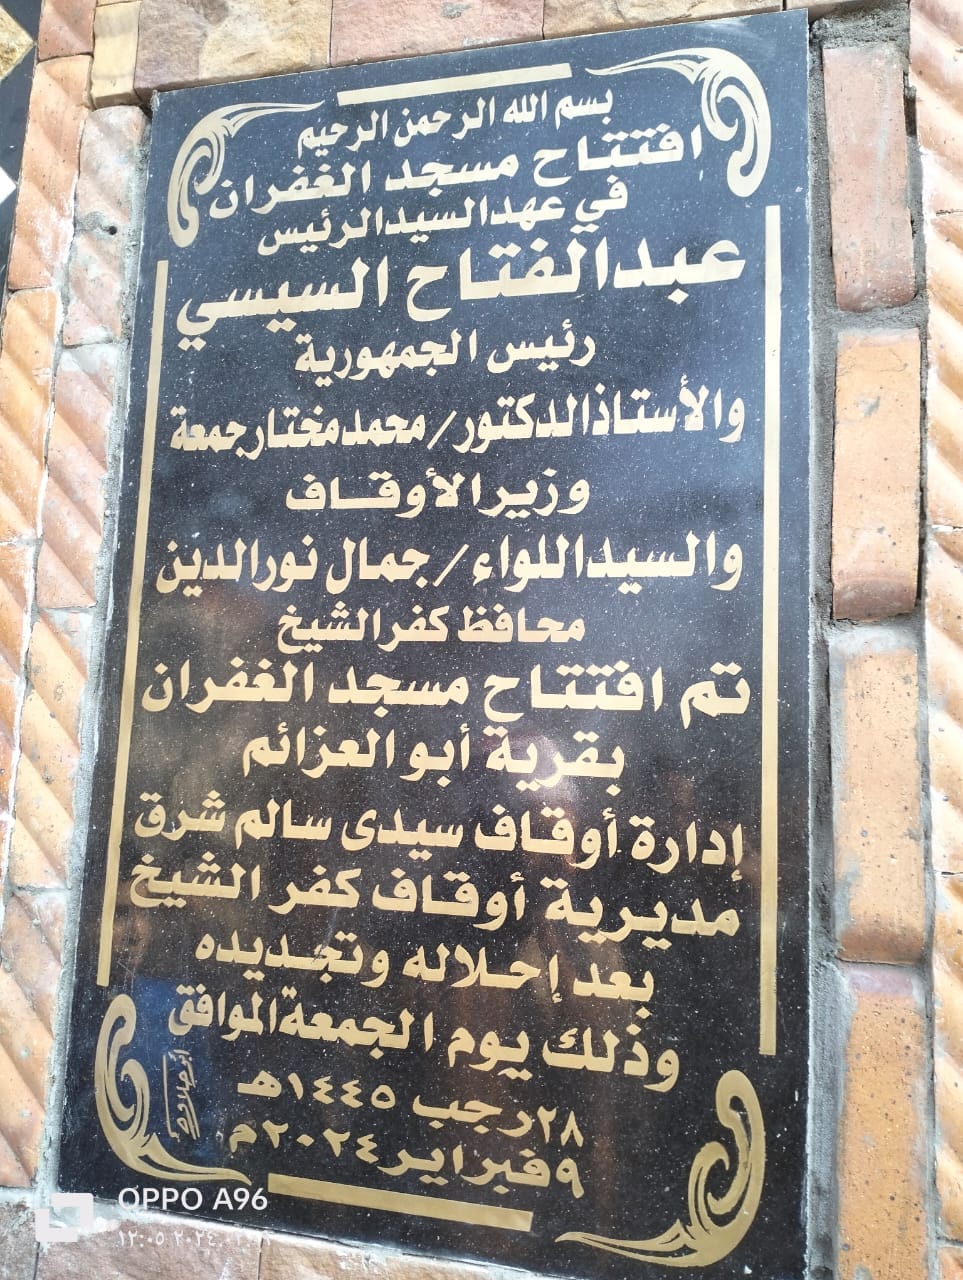 بسم الله الرحمن الرحيم
افتتاح مسجد الغفران
في عهد السيد الرئيس
عبدالفتاح السيسي
رئيس الجمهورية
والأستاذ الدكتور/ محمد مختار جمعة
وزير الأوقاف
والسيد اللواء/ جمال نور الدين
محافظ كفر الشيخ
تم افتتاح مسجد الغفران
بقرية أبو العزائم
إدارة أوقاف سيدى سالم شرق
مديرية أوقاف كفر الشيخ
بعد إحلاله وتجديده
وذلك يوم الجمعة الموافق
٢٨ رجب ١٤٤٥هـ
٩ فبراير ٢٠٢٤م
OPPO A96
١٢:٠٥